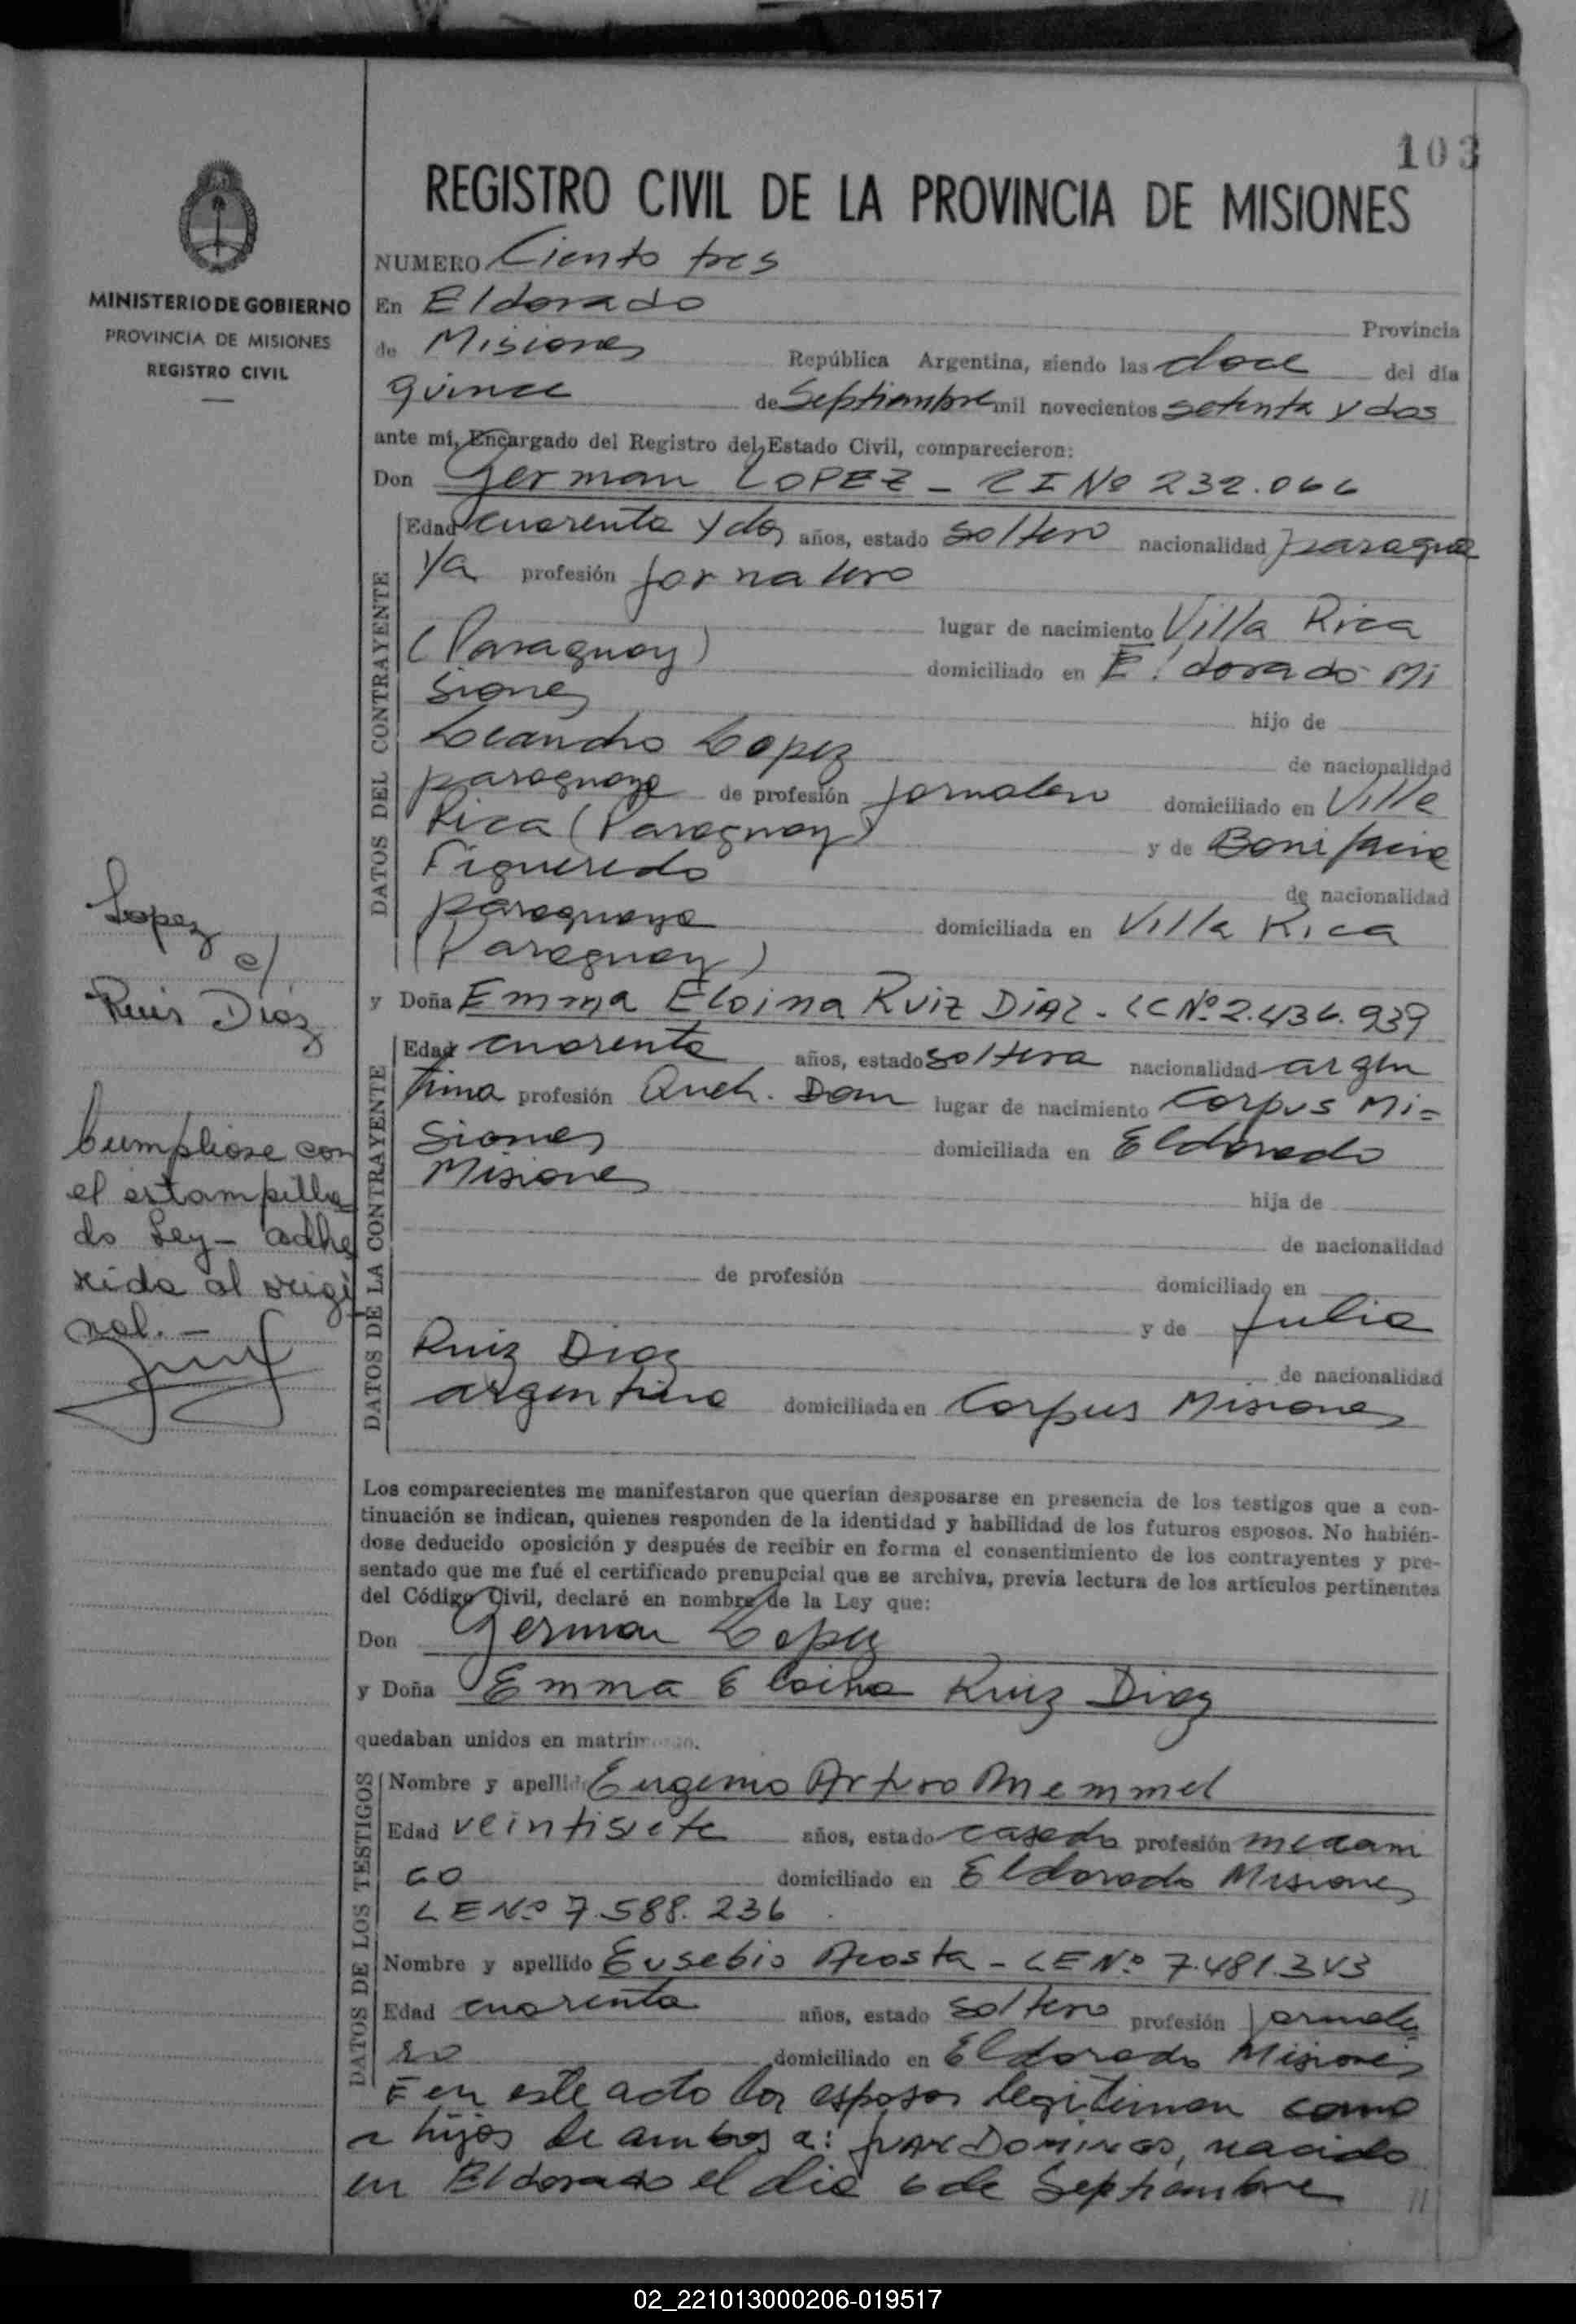 103
REGISTRO CIVIL DE LA PROVINCIA DE MISIONES
MINISTERIO DE GOBIERNO
PROVINCIA DE MISIONES
REGISTRO CIVIL
NUMERO Ciento tres
En Eldorado Provincia
de Misiones República Argentina, siendo las doce del día
quince de Septiembre mil novecientos setenta y dos
ante mí, Encargado del Registro del Estado Civil, comparecieron:
Don German LOPEZ - CI Nº 232.066
DATOS DEL CONTRAYENTE
Edad cuarenta y dos años, estado soltero nacionalidad paragua
ya profesión jornalero
lugar de nacimiento Villa Rica
(Paraguay) domiciliado en Eldorado Mi
siones hijo de
Leandro Lopez de nacionalidad
paraguaya de profesión jornalero domiciliado en Villa
Rica (Paraguay) y de Bonifacia
Figueredo de nacionalidad
paraguaya domiciliada en Villa Rica
(Paraguay)
y Doña Emma Eloina RUIZ DIAZ - LC Nº 2.436.939
DATOS DE LA CONTRAYENTE
Edad cuarenta años, estado soltera nacionalidad argen
tina profesión Queh. Dom lugar de nacimiento Corpus Mi=
siones domiciliada en Eldorado
Misiones hija de
de nacionalidad
de profesión domiciliado en
y de Julia
Ruiz Diaz de nacionalidad
argentina domiciliada en Corpus Misiones
Lopez
c/
Ruis Diaz
Cumpliose con
el estampilla
do Ley - adhe
rido al origi
nal. -
Los comparecientes me manifestaron que querían desposarse en presencia de los testigos que a con-
tinuación se indican, quienes responden de la identidad y habilidad de los futuros esposos. No habién-
dose deducido oposición y después de recibir en forma el consentimiento de los contrayentes y pre-
sentado que me fué el certificado prenupcial que se archiva, previa lectura de los artículos pertinentes
del Código Civil, declaré en nombre de la Ley que:
Don German Lopez
y Doña Emma Eloina Ruiz Diaz
quedaban unidos en matrimonio.
DATOS DE LOS TESTIGOS
Nombre y apellido Eugenio Arturo Memmel
Edad veintisiete años, estado casado profesión mecani
co domiciliado en Eldorado Misiones
LE Nº 7.588.236
Nombre y apellido Eusebio Acosta - LE Nº 7.481.343
Edad cuarenta años, estado soltero profesión jornale
ro domiciliado en Eldorado Misiones
E en este acto los esposos legitiman como
a hijos de ambos a: JUAN DOMINGO, nacido
en Eldorado el dia 6 de Septiembre //
02_221013000206-019517